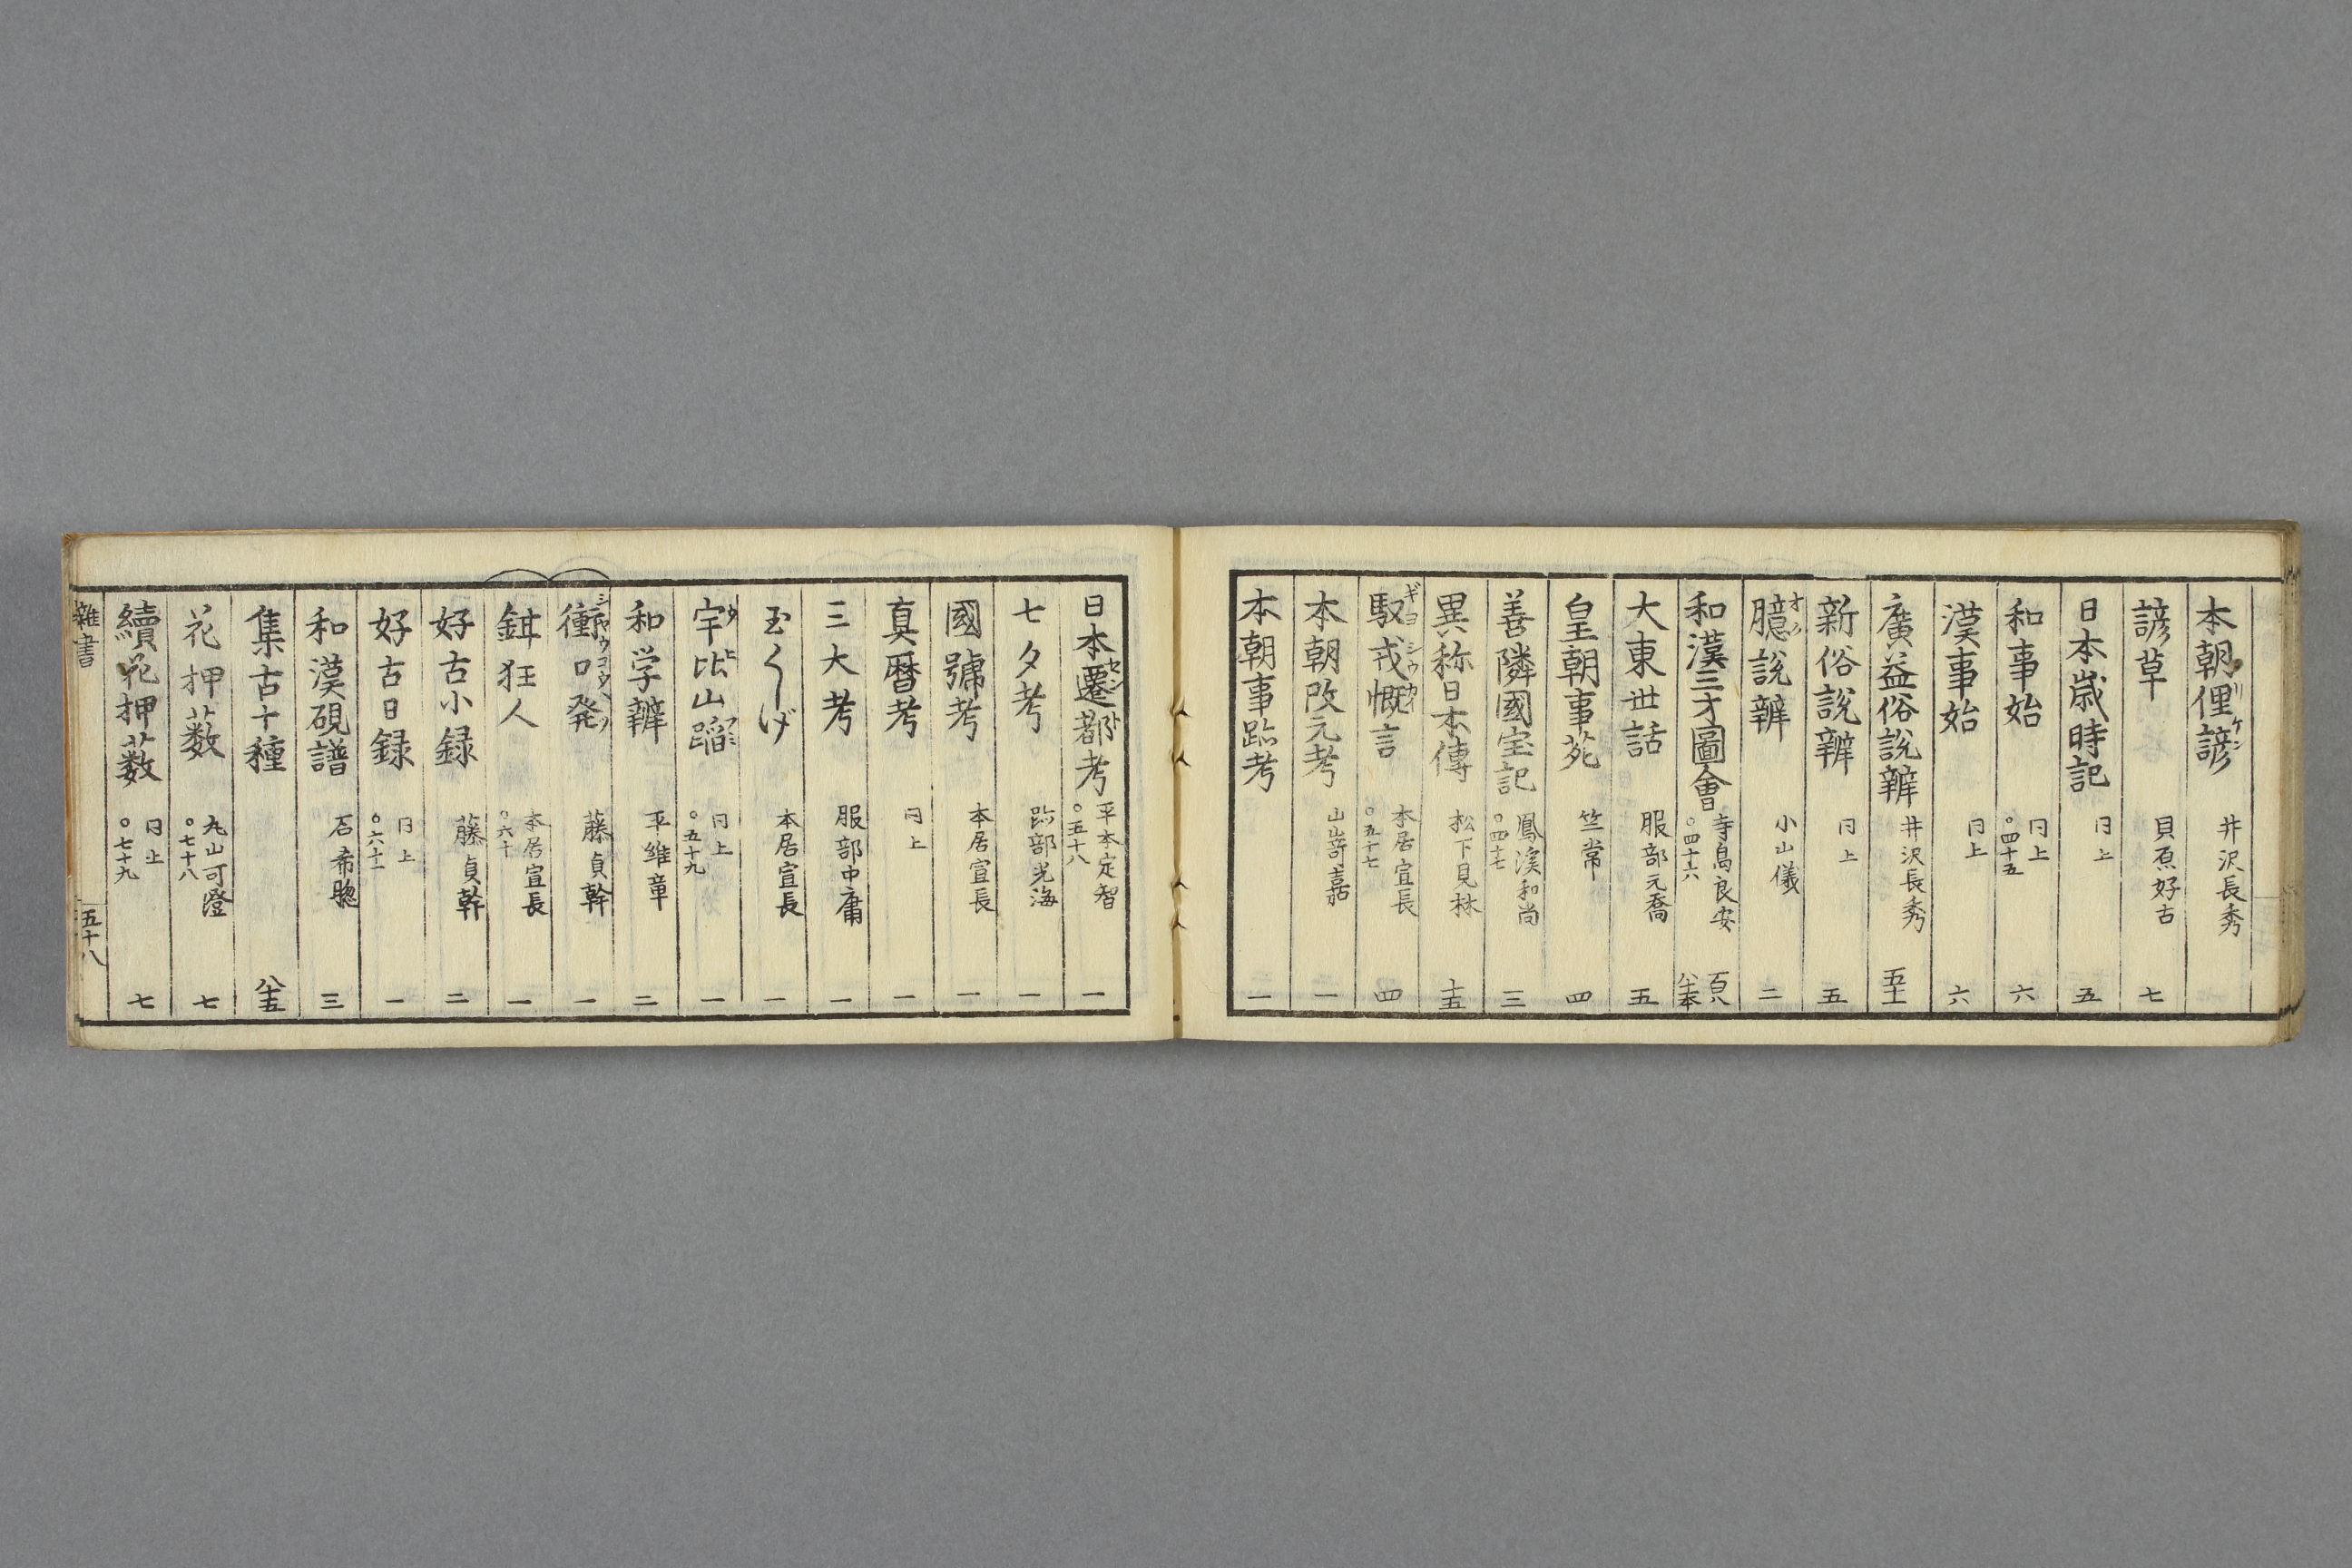 本朝俚諺 リケン 井沢長秀
諺草 貝原好古 七
日本歳時記 同上 五
和事始 同上 ○四十五 六
漢事始 同上 六
廣益俗説辨 井沢長秀 五十一
新俗説辨 同上 五
臆説辨 オク 小山儀 二
和漢三才圖會 寺島良安 ○四十六 百八 八十本
大東世話 服部元喬 五
皇朝事苑 竺常 四
善隣國宝記 鳳渓和尚 ○四十七 三
異称日本傳 松下見林 十五
馭戎慨言 ギヨシウカイ 本居宣長 ○五十七 四
本朝改元考 山嵜嘉 一
本朝事跡考 一
日本遷都考 セント 平本定智 ○五十八 一
七夕考 跡部光海 一
國號考 本居宣長 一
真暦考 同上 一
三大考 服部中庸 一
玉くしげ 本居宣長 一
宇比山蹈 ウヒフミ 同上 ○五十九 一
和学辨 平維章 二
衝口発 シヤウコウハツ 藤貞幹 一
鉗狂人 本居宣長 ○六十 一
好古小録 藤貞幹 二
好古日録 同上 ○六十一 一
和漢硯譜 石希聰 三
集古十種 八十五
花押薮 丸山可澄 ○七十八 七
續花押薮 同上 ○七十九 七
雜書 五十八